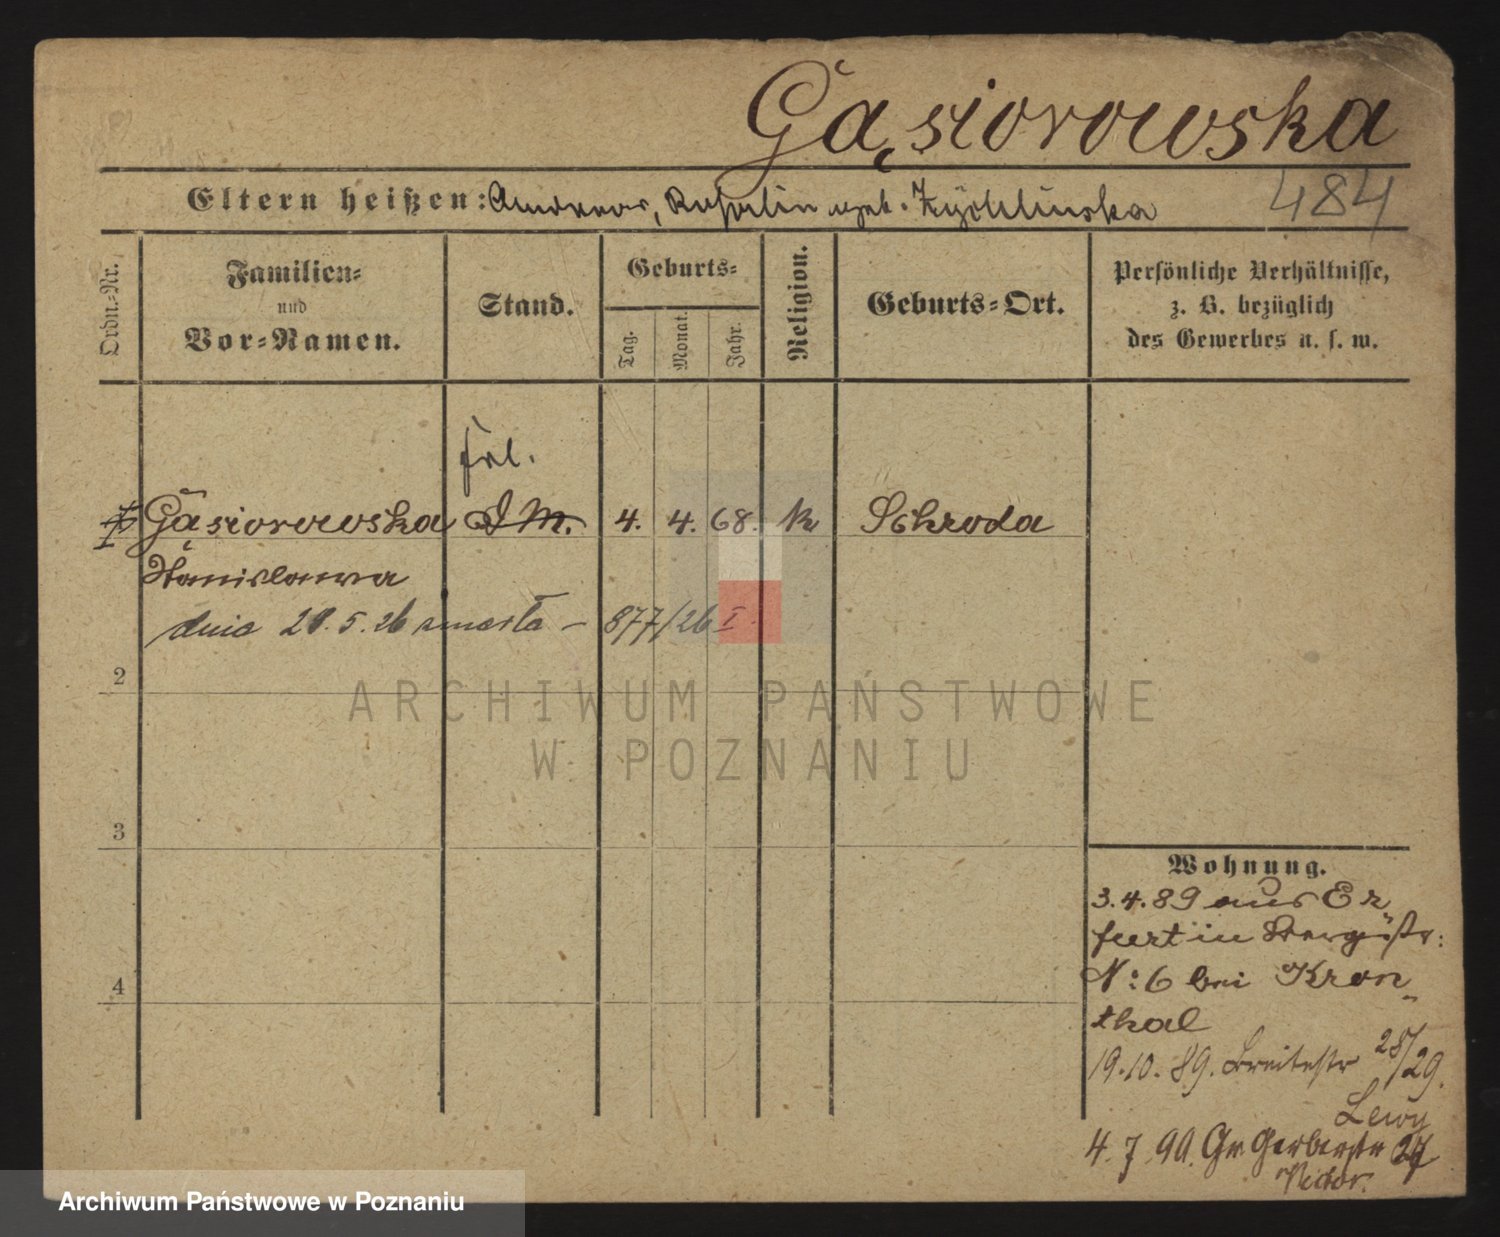 Gąsiorowska
Eltern heißen: Andreas, Rosalin geb. Zychlinska
484
Ordn.-Nr.
Familien-
und
Vor-Namen.
Stand.
Geburts-
Tag.
Monat.
Jahr.
Religion.
Geburts-Ort.
Persönliche Verhältnisse,
z. B. bezüglich
des Gewerbes u. s. w.
frl.
1 Gąsiorowska D M. 4. 4. 68. k Schroda
Stanislawa
dnia 29.5.26 zmarła – 877/26 I
2
ARCHIWUM PAŃSTWOWE
W POZNANIU
3
Wohnung.
3.4.89 aus Er
furt in Bergstr:
N: 6 bei Kron
4
thal
19.10.89. Breitestr 28/29.
Lewy
4.7.90. Gr. Gerberstr 27
Victor.
Archiwum Państwowe w Poznaniu